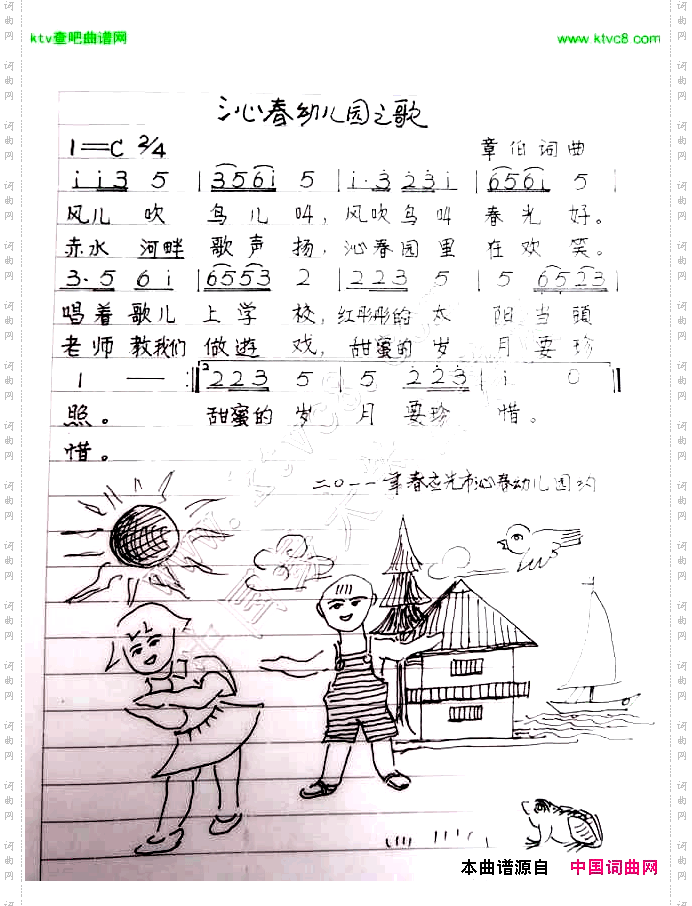 ktv查吧曲谱网 www.ktvc8.com
沁春幼儿园之歌
1=C 2/4 章伯词曲
i i 3 5 | 3 5 6 i 5 | i· 3 2 3 i | 6 5 6 i 5
风儿 吹 鸟儿 叫, 风吹鸟叫 春光好。
赤水 河畔 歌声 扬, 沁春园里 在欢笑。
3· 5 6 i | 6 5 5 3 2 | 2 2 3 5 | 5 6 5 2 3 |
唱着歌儿 上学 校, 红彤彤的 太 阳当頭
老师教我们 做遊 戏, 甜蜜的 岁 月要珍
1 — :‖ 2 2 2 3 5 | 5 2 2 3 | i 0 ‖
照。 甜蜜的 岁 月 要珍 惜。
惜。
本曲谱源自 中国词曲网